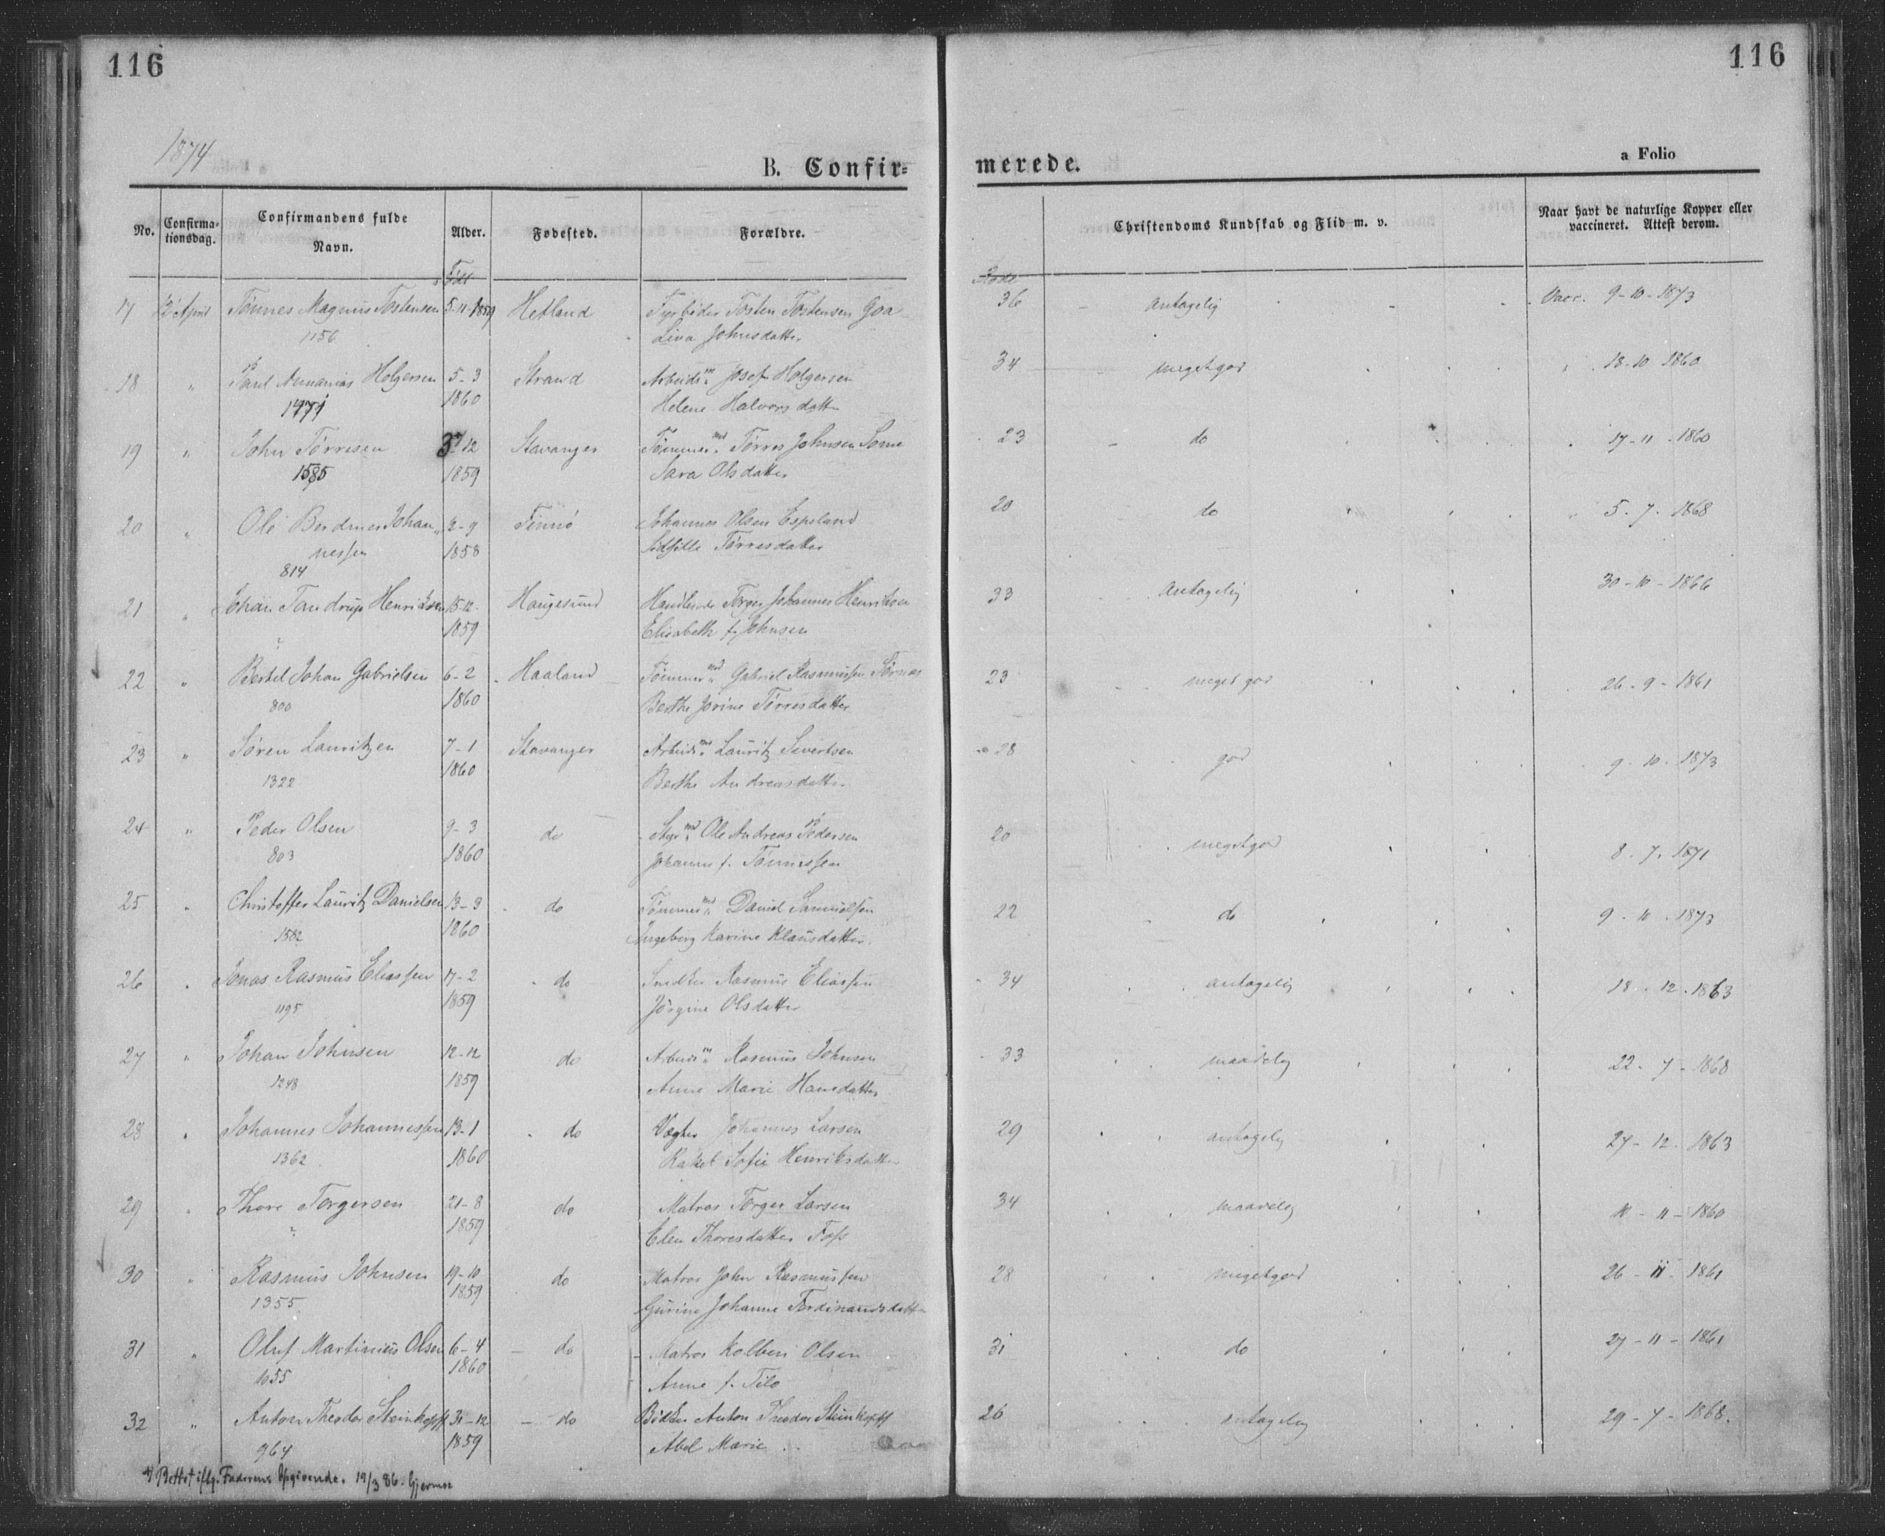 116
116
1874
B. Confir=
merede.
a Folio
No.
Confirma-
tionsdag.
Confirmandens fulde
Navn.
Alder.
Fødested.
Forældre.
Christendoms Kundskab og Flid m. v.
Naar havt de naturlige Kopper eller
vaccineret. Attest derom.
Født
17 April Tønnes Magnus Tostensen 5-11-1859 Hetland Fyrbøder Tosten Tostensen Goa 36 antagelig Vacc. 9-10-1873
1156 Lina Johnsdatter
18 " Paul Ananias Holgersen 5-3 Strand Arbeidsm. Josef Holgersen 34 megetgod " 18-10 1860
1860 Helene Halvorsdatter
19 " John Tørresen 12 Stavanger Tømmermd. Tørres Johnsen Some 23 do 17-11-1860
1585 1859 Sara Olsdatter
20 " Ole Berdines Johan- 2-9 Finnø Johannes Olsen Espeland 20 do 5-7-1868
nessen 1858 Sidsille Tørresdatter
814
21 " Johan Tandrup Henriksen 15-12 Haugesund Handlende Torger Johannes Henriksen 33 antagelig 30-10-1866
" 1859 Elisabeth f. Johnsen
22 " Bertel Johan Gabrielsen 6-2 Haaland Tømmermd. Gabriel Rasmussen 23 meget god 26-9-1861
800 1860 Berthe Jorine Tørresdatter
23 " Søren Lauritzen 7-1 Stavanger Arbeidsmd. Lauritz Sivertsen 28 god 9-10-1873
1322 1860 Berthe Andreasdatter
24 " Peder Olsen 9-3 do Styrmd. Ole Andreas Pedersen 20 megetgod 8-7-1871
803 1860 Johanne f. Tønnessen
25 " Christoffer Lauritz Danielsen 13-3 do Tømmermd. Daniel Samuelsen 22 do 9-10-1873
1582 1860 Ingeborg Karine Klausdatter
26 " Jonas Rasmus Eliassen 17-2 do Snedker Rasmus Eliassen 34 antagelig 18-12-1863
1195 1859 Jørgine Olsdatter
27 " Johan Johnsen 12-12 do Arbeidsm. Rasmus Johnsen 33 maadelig 22-7-1868
1248 1859 Anne Marie Hansdatter
28 " Johannes Johannessen 13-1 do Vægter Johannes Larsen 29 antagelig 27-12-1863
1362 1860 Rakel Sofie Henriksdatter
29 " Thore Torgersen 21-8 do Matros Torger Larsen 34 maadelig 11-11-1860
" 1859 Elen Thoresdatter Foss
30 " Rasmus Johnsen 19-10 do Matros John Rasmussen 28 megetgod 26-11-1861
1355 1859 Gurine Johanne Ferdinandsdatter
31 " Oluf Martinius Olsen 6-4 do Matros Kolben Olsen 31 do 27-11-1861
1055 1860 Anne f. Tilo
32 " Anton Theodor Steinkopff 31-12 do Bødker Anton Theodor Steinkopff 26 antagelig 29-7-1868.
964 1859 Abel Marie
Rettet iflg. Faderens Opgivende. 19/3 86. Gjermoe